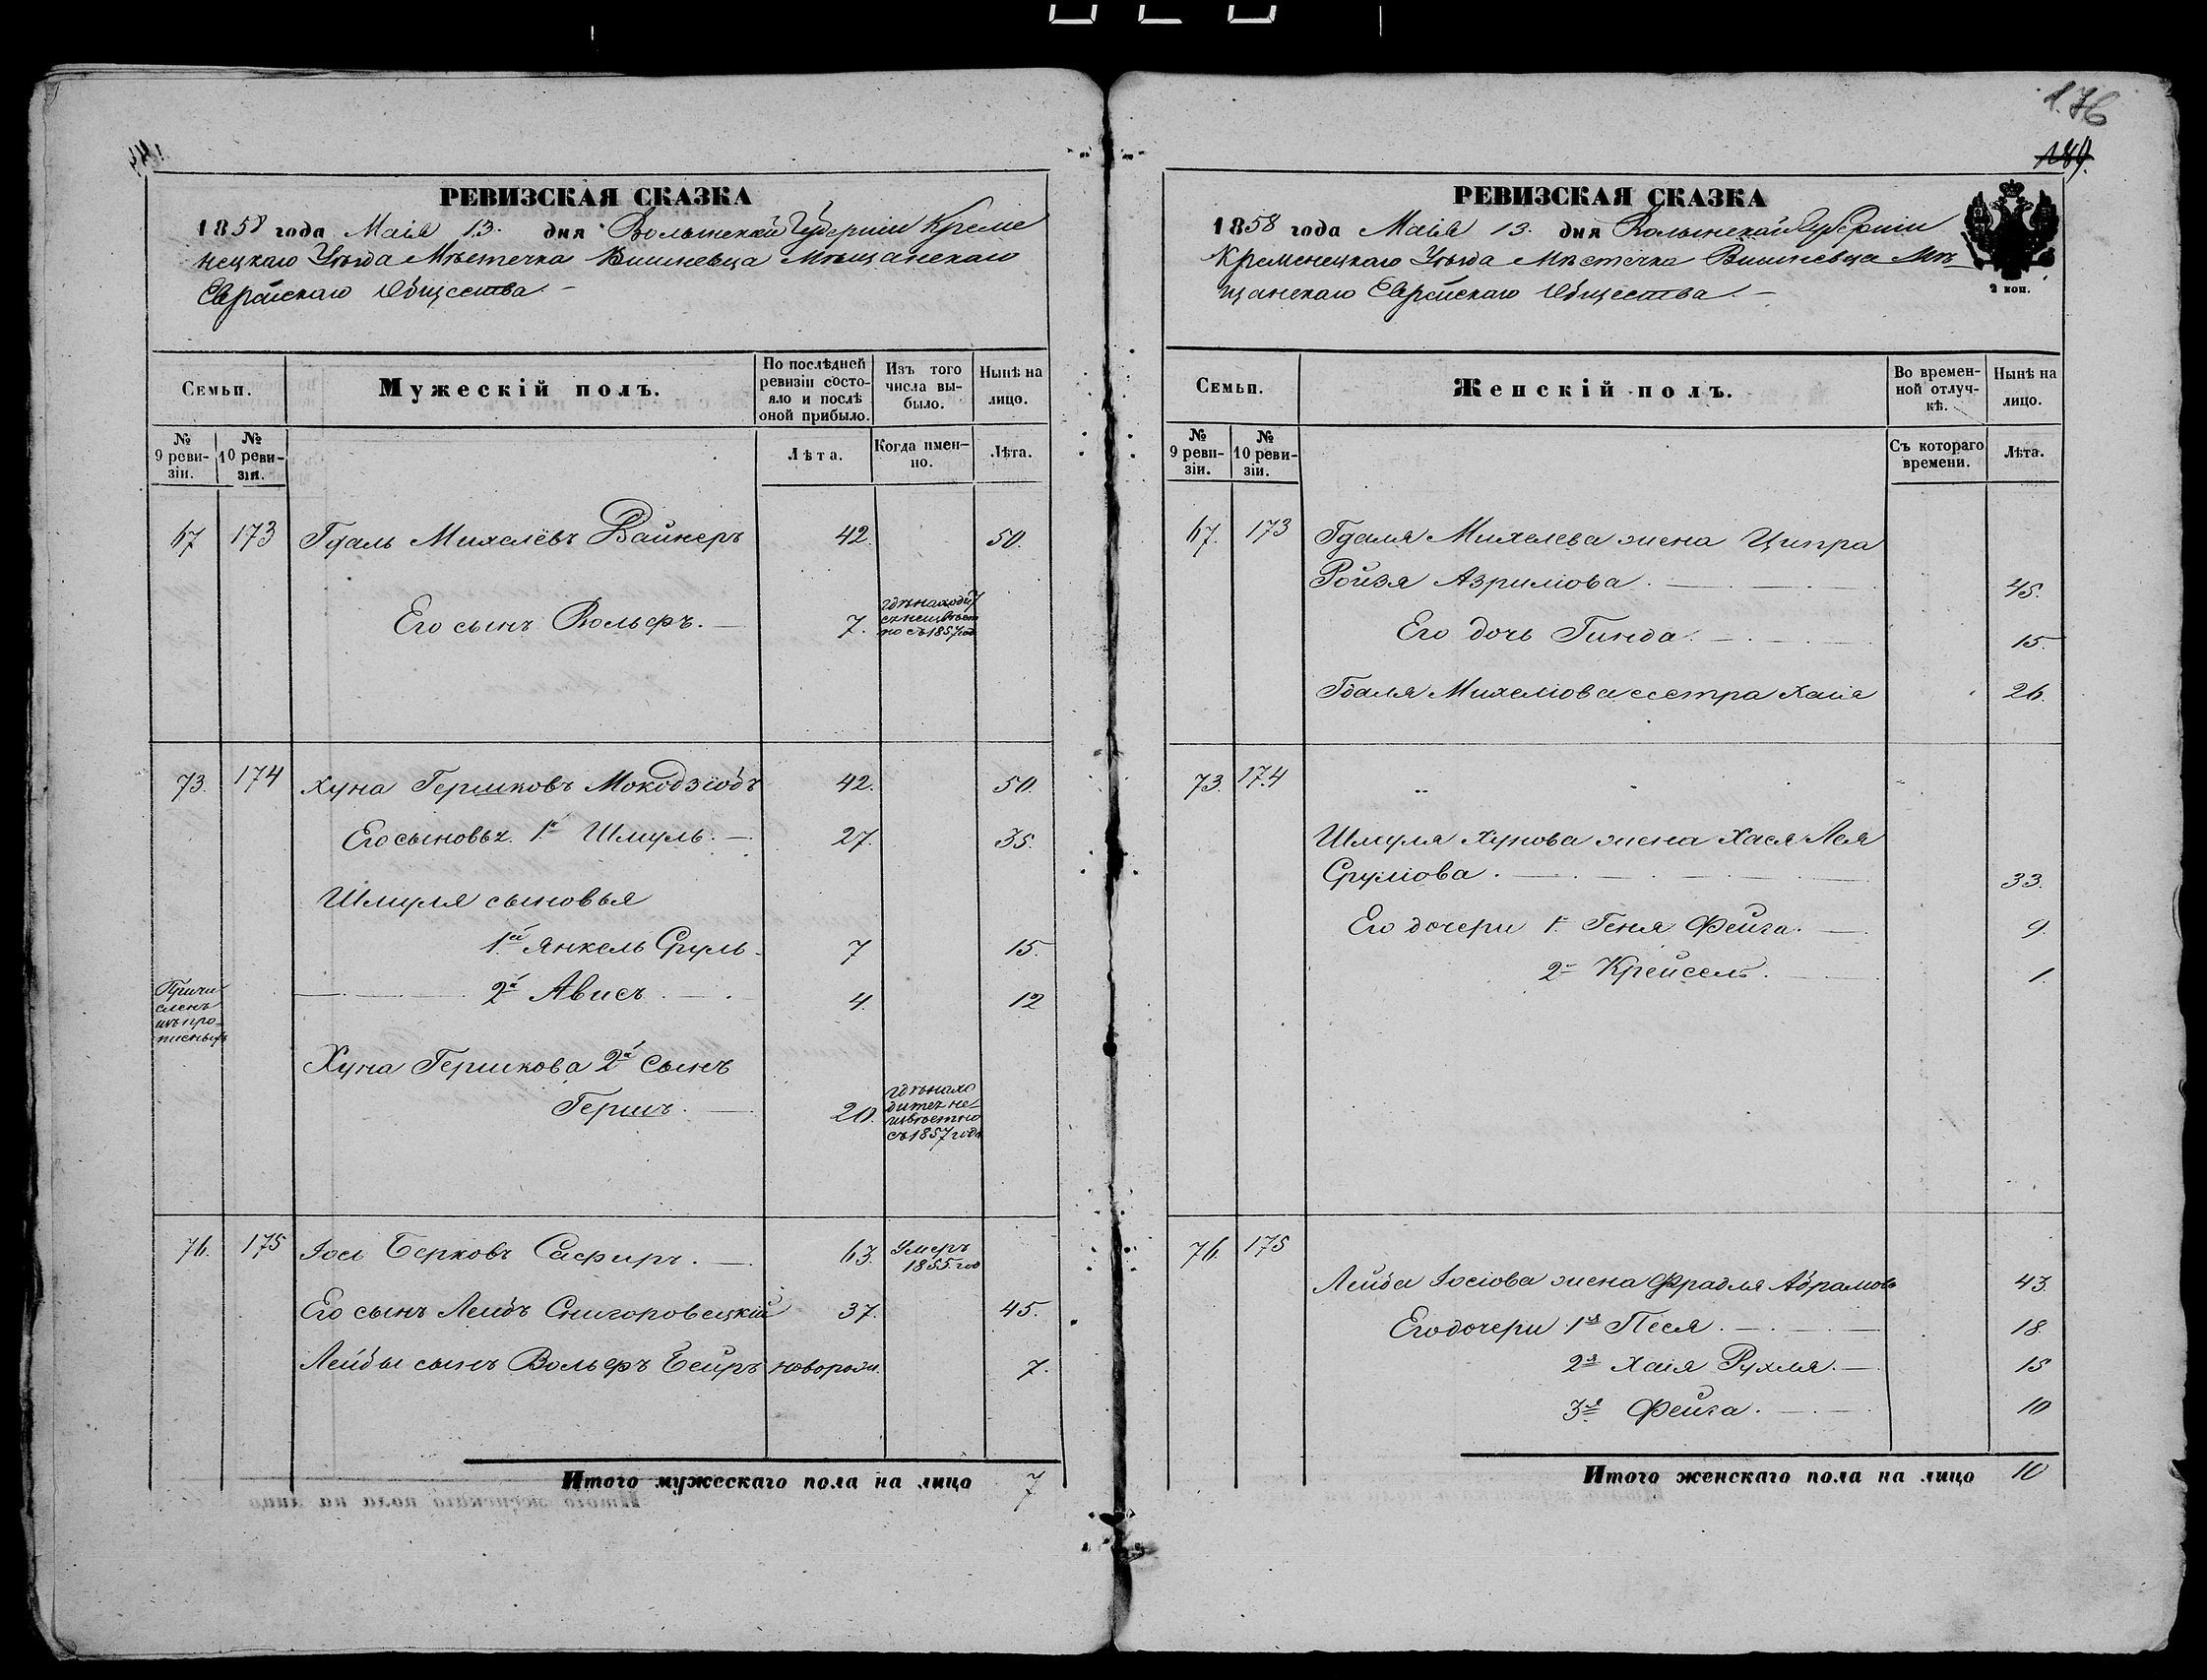 176
184
РЕВИЗСКАЯ СКАЗКА
1858 года Маія 13. дня Волынской Губерніи Креме
нецкаго Уѣзда Мѣстечка Вишневца Мѣщанскаго
Еврейскаго Общества
Семьи.
Мужескій полъ.
По послѣдней ревизіи состояло и послѣ оной прибыло.
Изъ того числа выбыло.
Нынѣ на лицо.
№ 9 ревизіи.
№ 10 ревизіи.
Лѣта.
Когда именно.
Лѣта.
67 173 Гдаль Михелевъ Вайнеръ 42. 50.
Его сынъ Вольфъ. 7. гдѣ находит
ся неизвѣст
но съ 1857 год
73. 174 Хуна Гершковъ Мокодзіобъ 42. 50.
Его сыновья. 1й Шмуль. 27. 35.
Шмуля сыновья
1й Янкель Сруль 7 15.
Причи
сленъ
изъ про
писныхъ
2й Ависъ 4. 12
Хуна Гершкова 2й сынъ
Гершъ. 20. гдѣ нахо
дится не
извѣстно
съ 1857 года
76. 175 Іось Берковъ Сафиръ. 63. Умеръ
1855 год
Его сынъ Лейбъ Снигоровецкій 37. 45.
Лейбы сынъ Вольфъ Беиръ новорож. 7.
Итого мужескаго пола на лицо 7
РЕВИЗСКАЯ СКАЗКА
1858 года Маія 13. дня Волынской Губерніи
Кременецкаго Уѣзда Мѣстечка Вишневца Мѣ
щанскаго Еврейскаго Общества
2 коп.
Семьи.
Женскій полъ.
Во временной отлучкѣ.
Нынѣ на лицо.
№ 9 ревизіи.
№ 10 ревизіи.
Съ котораго времени.
Лѣта.
67. 173 Гдаля Михелева жена Ципра
Ройзя Азриліова. 45.
Его дочь Гинда. 15.
Гдаля Михеліова сестра Хаія 26.
73. 174
Шмуля Хунова жена Хася Лея
Сруліова. 33.
Его дочери 1. Геня Фейга. 9.
2 Крейсель. 1.
76. 175
Лейба Іосіова жена Фрадля Абрамов 43.
Его дочери 1я Песя. 18.
2я Хаія Рухля. 15
3я Фейга. 10
Итого женскаго пола на лицо 10